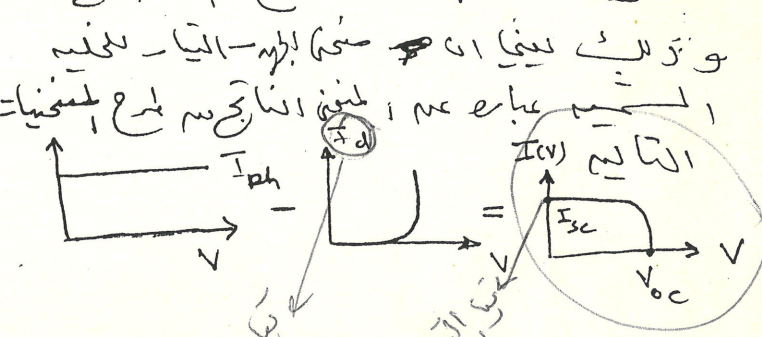 وذلك بينما ان منحنى الجهد-التيار للخليه
الشمسيه عباره عن المنحنى الناتج من طرح المنحنيات
التاليه
I(V)
I_d
I_ph
-
=
I_sc
V
V
V
V_oc